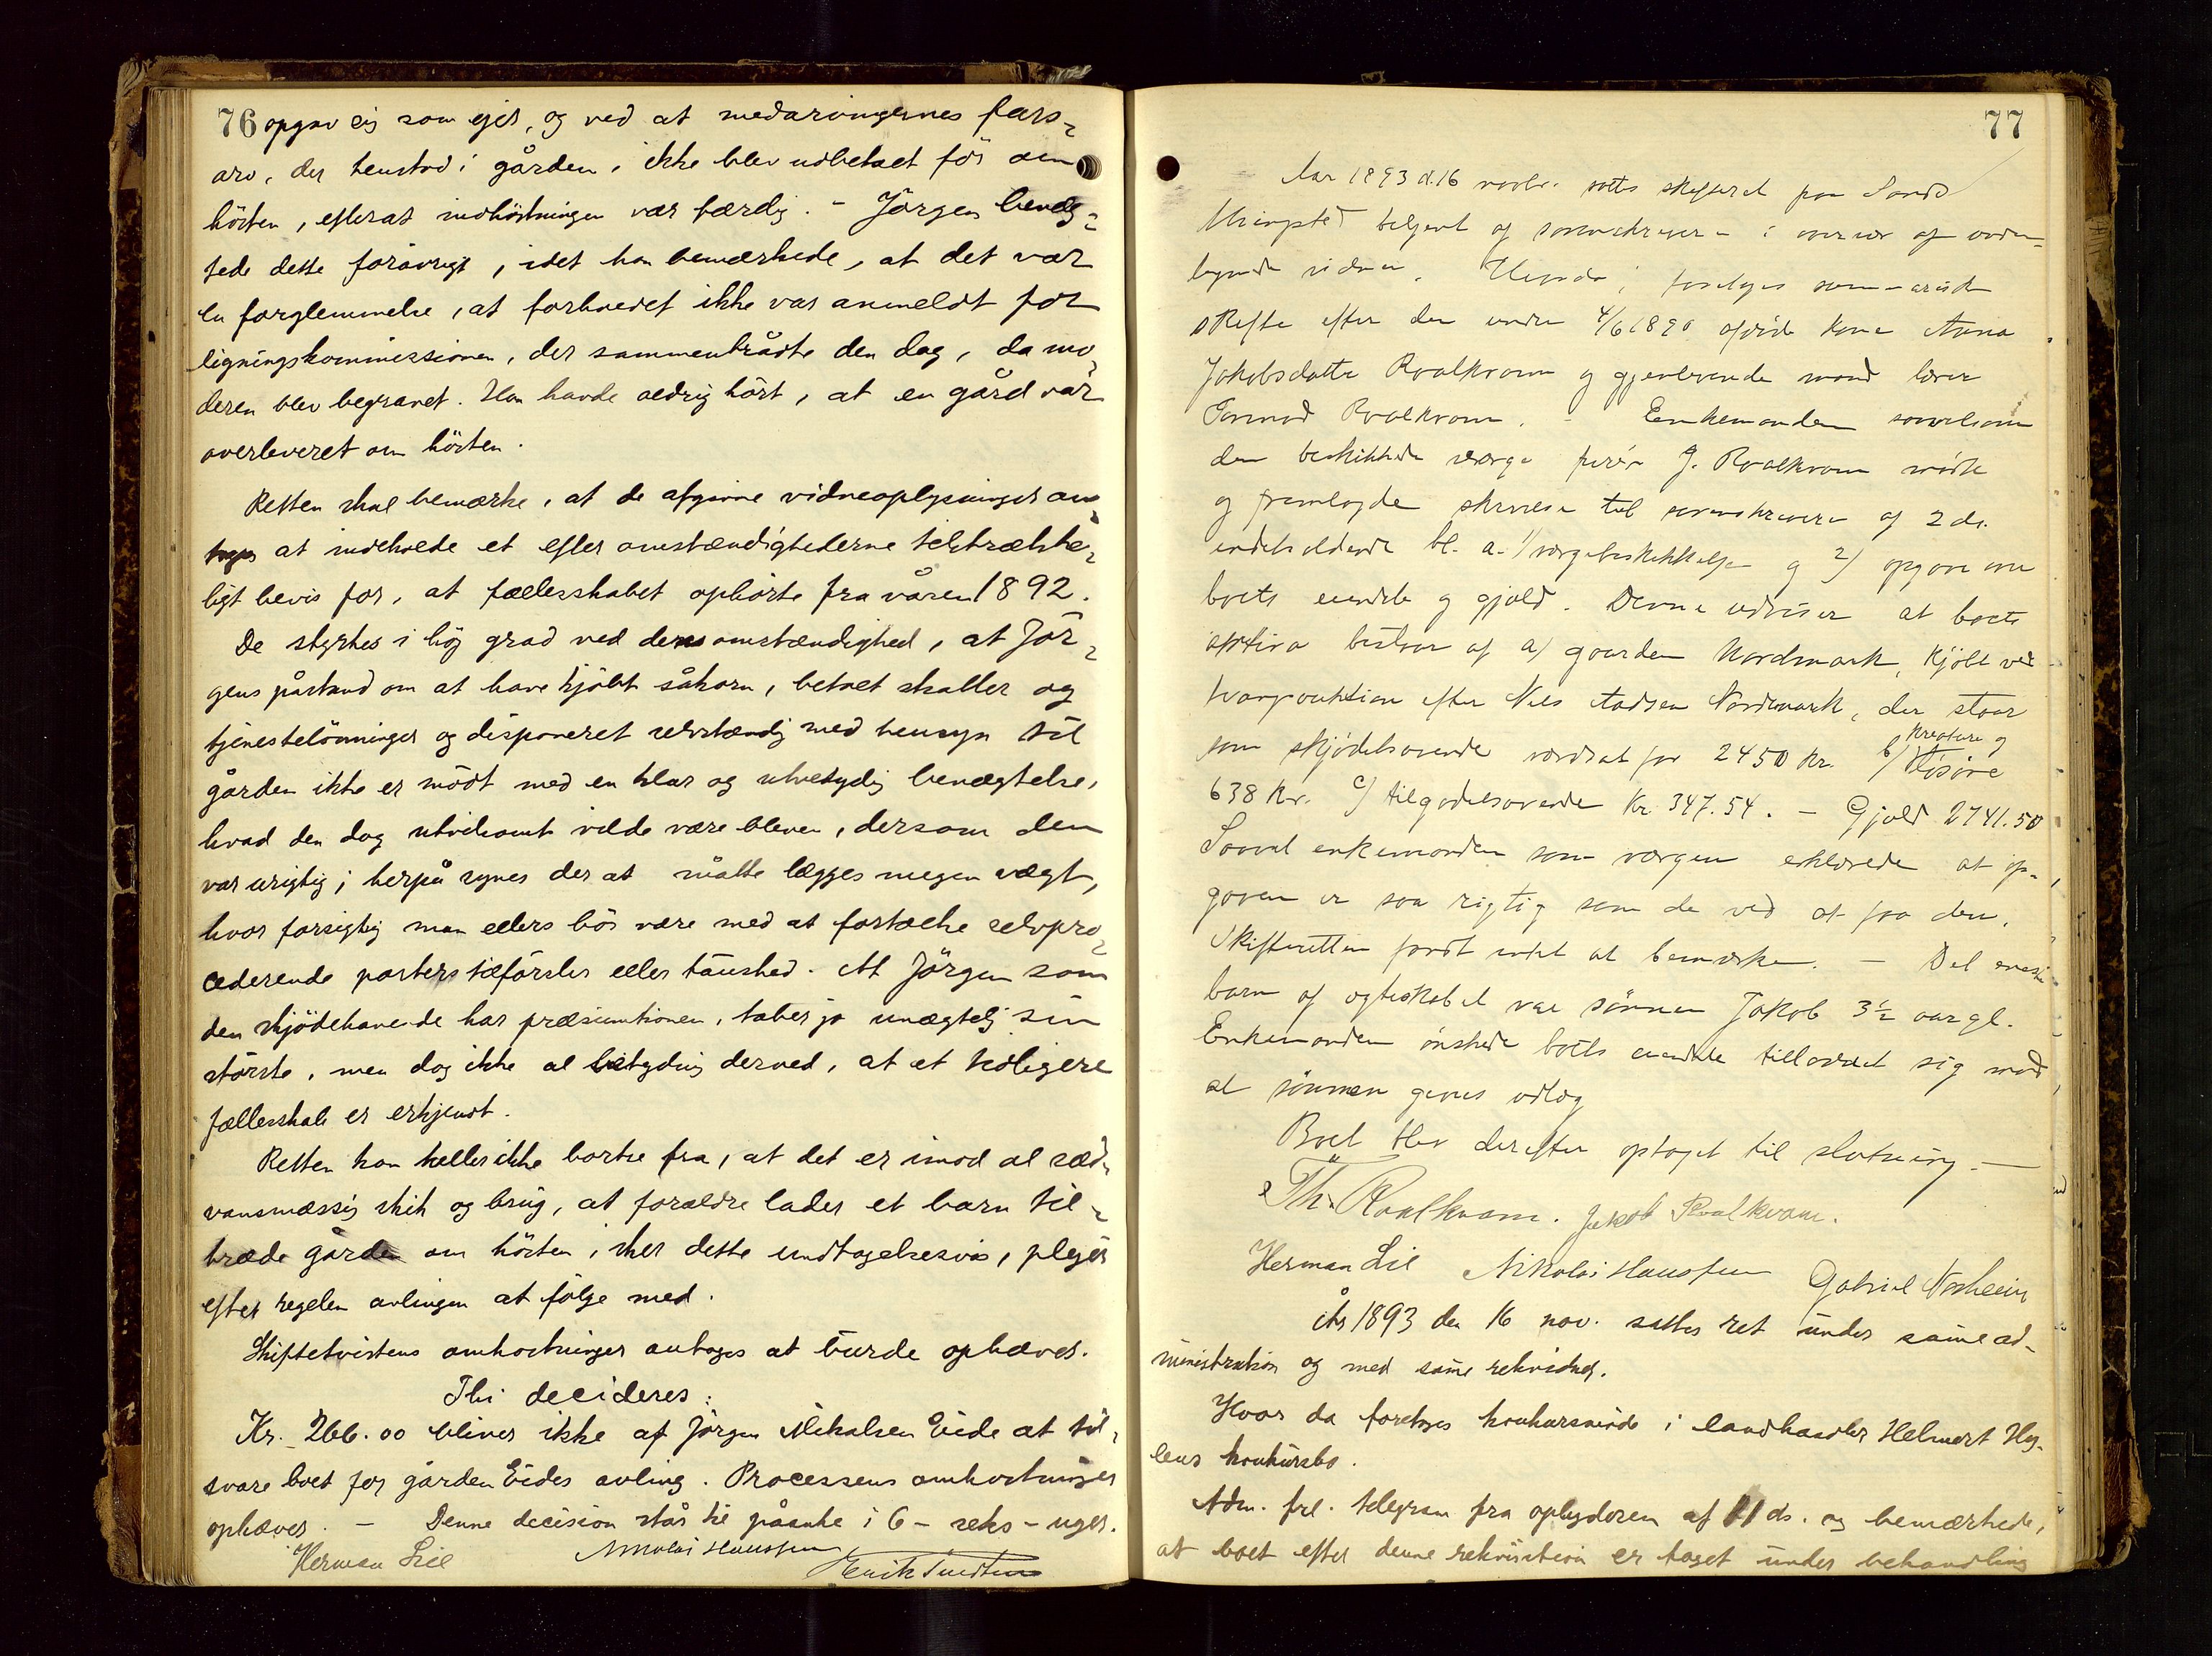 76 opgav sig som ejer, og ved at medarvingernes fars-
arv, der henstod i gården, ikke blev udbetaet før om
hösten, efterat indhöstningen var færdig. - Jörgen benæg-
tede dette forövrigt, idet han bemærkede, at det var
en forglemmelse, at forhoedet ikke var anmeldt for
ligningskommissionen, der sammentrådte den dag, da mo-
deren blev begravet. Han havde aldrig hört, at en gård var
overleveret om hösten.
Retten skal bemærke, at de afgivne vidneoplysninger an-
tages at indeholde et efter omstændighederne tilstrække-
ligt bevis for, at fællesskabet ophörte fra våren 1892.
De styrkes i höj grad ved den omstændighed, at Jör-
gens påstand om at have kjöbt såkorn, betaet skatter og
tjenestelönninger og disponeret selvstændig med hensyn til
gården ikke er mödt med en klar og utvetydig benægtelse,
hvad den dog utvilsomt vilde være bleven, dersom den
var urigtig; herpå synes der at måtte lægges megen vægt,
hvor forsigtig man ellers bör være med at fortolke selvpro-
cederende parters tilförsler eller taushed. At Jörgen som
den skjödehavende har præsumtionen, taber jo unægtelig sin
störste, men dog ikke al betydning derved, at et tidligere
fællesskab er erkjendt.
Retten kan heller ikke bortse fra, at det er imod al sæd-
vansmæssig skik og brug, at forældre lader et barn til-
træde gården om hösten, sker dette undtagelsesvis, plejer
efter regelen avlingen at fölge med.
Skiftetvistens omkostninger antages at burde ophæves.
Thi decideres:
Kr. 266.00 bliver ikke af Jörgen Mikalsen Eide at til-
svare boet for gården Eides avling. Processens omkostninger
ophæves. - Denne decision står til påanke i 6 - seks - uger.
Herman Lie Nikolai Haussen Henrik
77
Aar 1893 d. 16 novbr. sattes skifteret paa Sands
thingsted betjent af sorenskriveren i overvær af under-
tegnede vidner. Hvorda; foretoges summarisk
skifte efter den under 4/6 1890 afdøde kone Anna
Jakobsdatter Rvalkvam og gjenlevende mand lærer
Rvalkvam. - Enkemanden saavelsom
den beskikkede værge J. Rvalkvam mødte
og fremlagde skrivelse til sorenskriveren af 2 ds.
indeholdende bl. a. 1) værgebeskikkelse og 2) opgave over
boets eiendele og gjæld. Denne udviser at boets
aktiva bestaar af a) gaarden Nordmark, kjöbt ved
tvangsauktion efter Nils Aadsen Nordmark, der staar
som skjödehavende værdsat for 2450 kr. b) kreature og
lösöre
638 kr. c) tilgodehavende Kr. 347.54. - Gjæld 2741.50
Saavel enkemanden som værgen erklærede at op-
gaven er saa rigtig som de ved at faa den.
Skifteretten fandt intet at bemærke. - Det eneste
barn af ægteskabet var sönnen Jakob 3½ aar gl.
Enkemanden ønskede boets eiendele tilloddet sig mod
at sönnen gives udlæg
Boet blev derefter optaget til slutning. -
Th. Rvalkvam. Jakob Rvalkvam.
Herman Lie Nikolai Haussen Gabriel Norheim
År 1893 den 16 nov. sattes ret under samme ad-
ministration og med samme retsvidner.
Hvor da foretoges konkursmöde i landhandler Helmert Hey-
lens konkursbo.
Adm. frl. telegram fra opbyderen af 11 ds. og bemærkede,
at boet efter denne rekvisition er taget under behandling